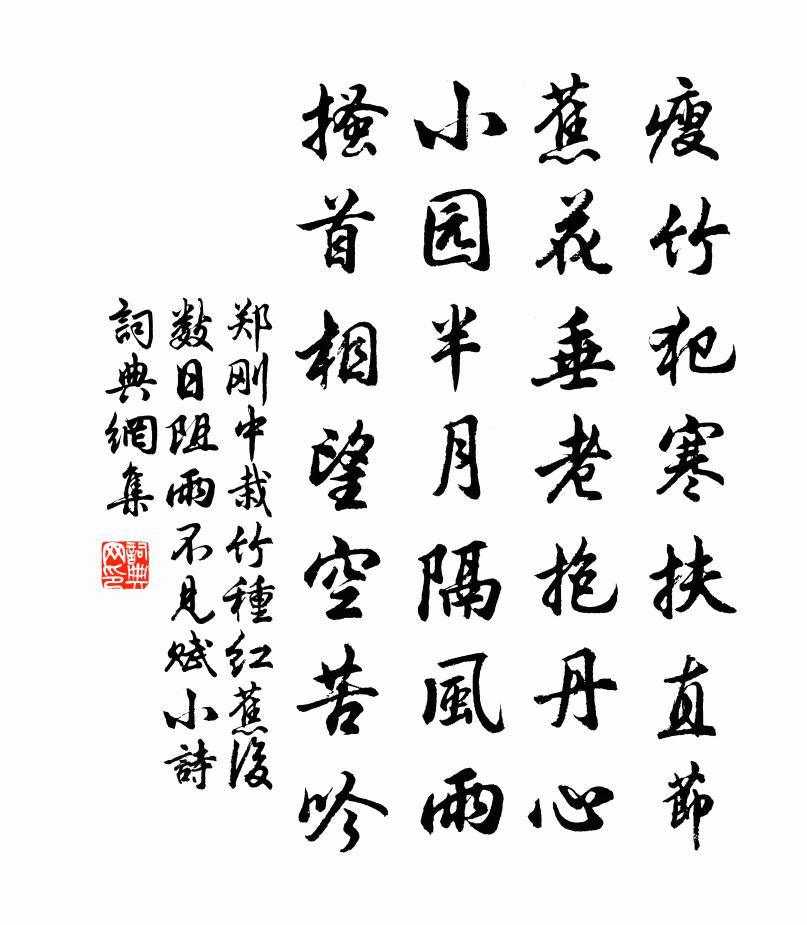 瘦竹犯寒扶直節
蕉花垂老抱丹心
小园半月隔風雨
搔首相望空苦吟
郑刚中栽竹種红蕉後
数日阻雨不見赋小詩
詞典網集
詞典网印